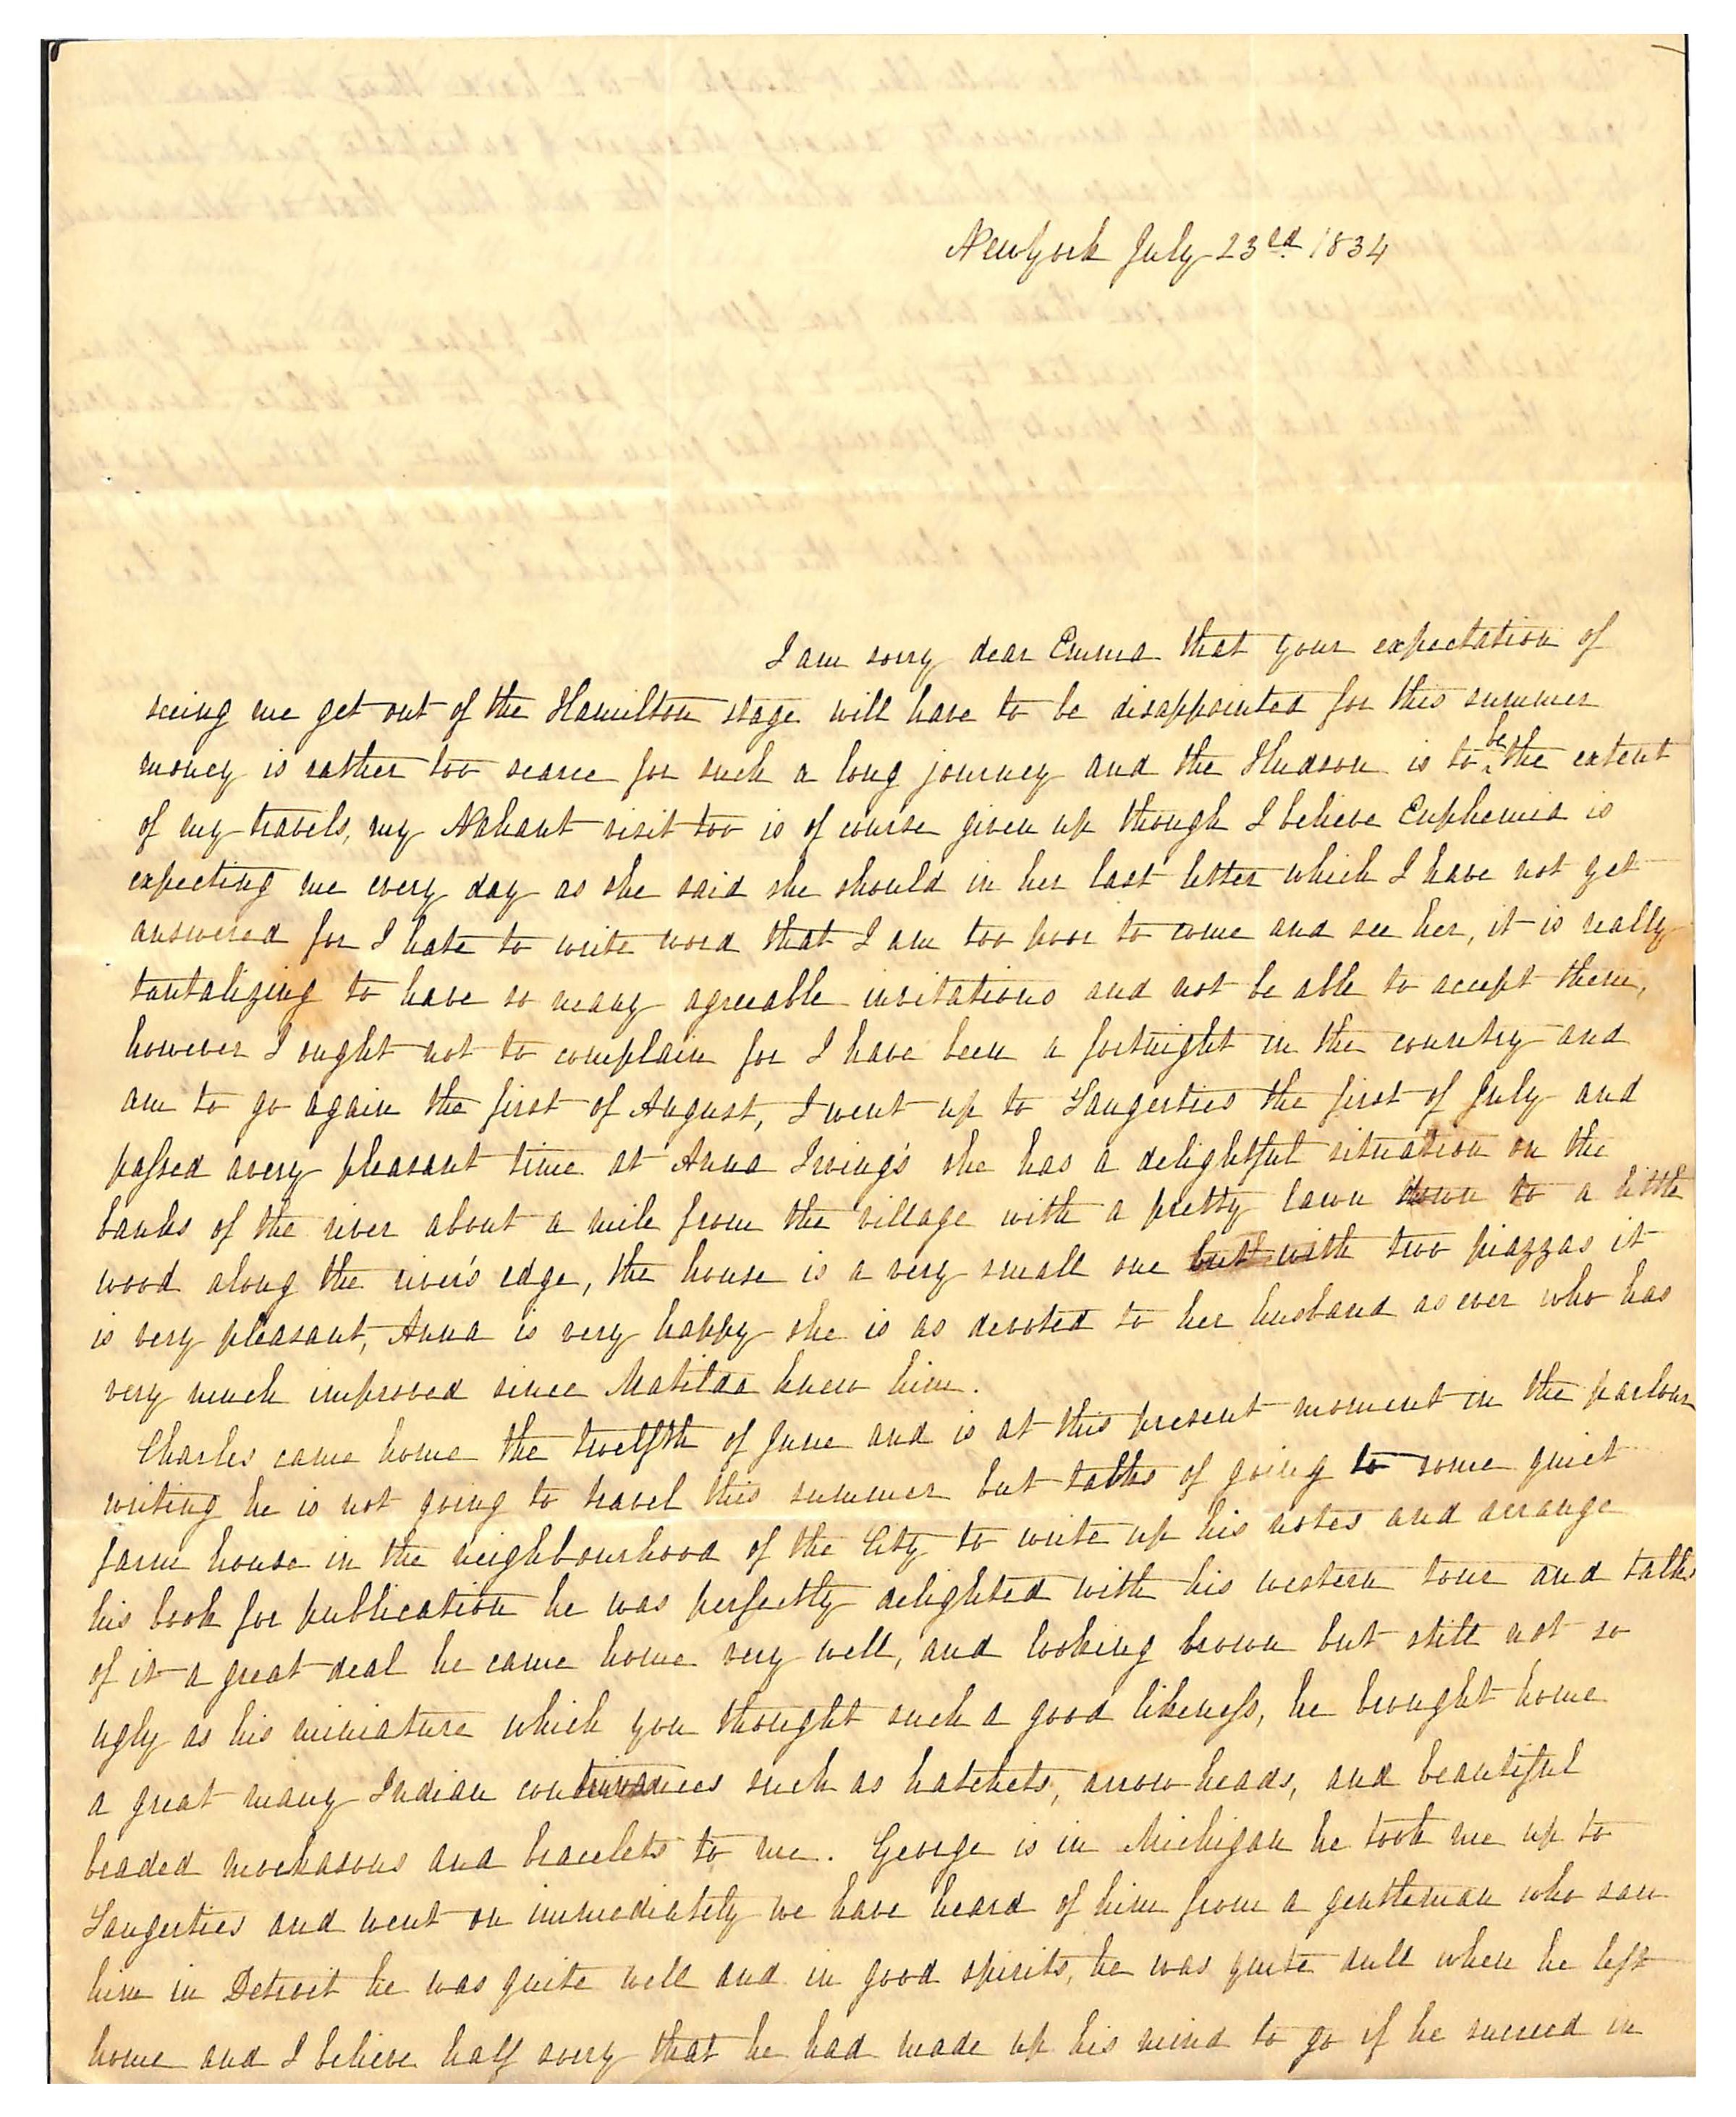 NewYork July 23ed 1834
I am sorry dear Emma that your expectation of
seeing me get out of the Hamilton stage will have to be disappointed for this summer
money is rather too scarce for such a long journey and the Hudson is to be the extent
of my travels, my Nahant visit too is of course given up though I believe Euphemia is
expecting me every day as she said she should in her last letter which I have not yet
answered for I hate to write word that I am too poor to come and see her, it is really
tantalizing to have so many agreeable invitations and not be able to accept them,
however I ought not to complain for I have been a fortnight in the country and
am to go again the first of August, I went up to Saugerties the first of July and
passed a very pleasant time at Anna Irving's she has a delightful situation on the
banks of the river about a mile from the village with a pretty lawn down to a little
wood along the river's edge, the house is a very small one but with two piazzas it
is very pleasant, Anna is very happy she is as devoted to her husband as ever who has
very much improved since Matilda knew him.
Charles came home the twelfth of June and is at this present moment in the parlour
writing he is not going to travel this summer but talks of going to some quiet
farm house in the neighbourhood of the City to write up his notes and arrange
his book for publication he was perfectly delighted with his western tour and talks
of it a great deal he came home very well, and looking brown but still not so
ugly as his miniature which you thought such a good likeness, he brought home
a great many Indian contrivances such as hatchets, arrow heads, and beautiful
beaded mockasons and bracelets to me. George is in Michigan he took me up to
Saugerties and went on immediately we have heard of him from a gentleman who saw
him in Detroit he was quite well and in good spirits, he was quite dull when he left
home and I believe half sorry that he had made up his mind to go if he succeed in